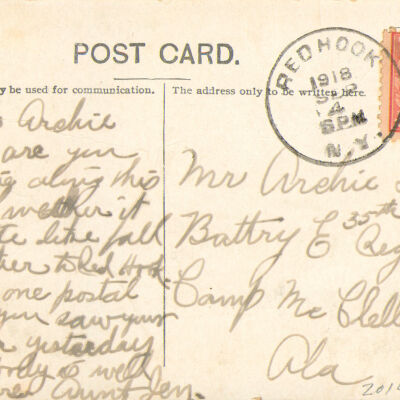 POST CARD.
y be used for communication.
The address only to be written here.
RED HOOK
1918
SEP
4
6 PM
N.Y.
Archie
are you
along this
wether it
like fall
to Red Hook
one postal
you saw your
yesterday
body is well
Aunt Jen.
Mr Archie
Battry E 35th Reg
Camp Mc Clell
Ala
201